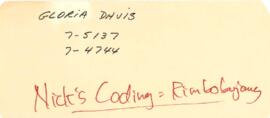 GLORIA DAVIS
7-5137
7-4744
Nick's Coding = Rimbobajong